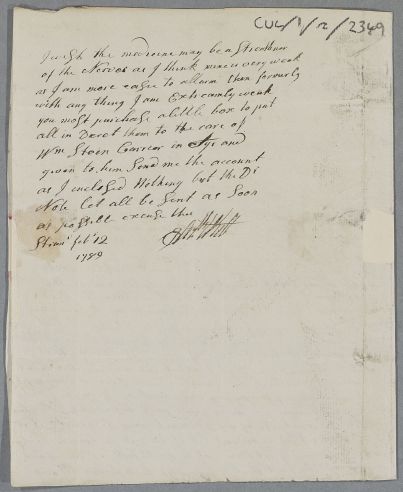 CUL/1/2/2349
I wish the medicine may be a Strenthner
of the Nerves as I think mine is very weak
as I am more easie to allarm then formerly
with any thing I am Extreamly weak
you most purchase a little box to put
all in Derect them to the care of
Wm Steen Carrear in and
given to him Send me the account
as I enclosed Nothing but the Di
Note let all be Sent as Soon
as possible excuse this
feb 12
1789